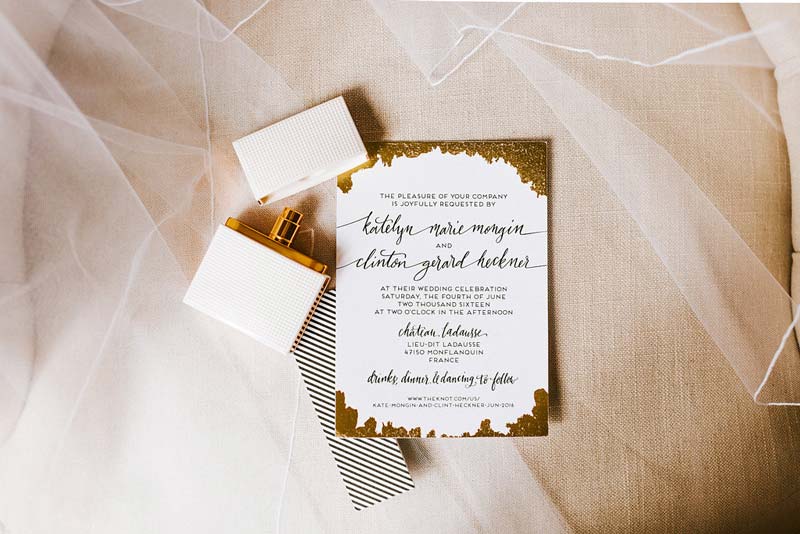 THE PLEASURE OF YOUR COMPANY
IS JOYFULLY REQUESTED BY
katelyn marie mongin
AND
clinton gerard heckner
AT THEIR WEDDING CELEBRATION
SATURDAY, THE FOURTH OF JUNE
TWO THOUSAND SIXTEEN
AT TWO O'CLOCK IN THE AFTERNOON
château ladausse
LIEU-DIT LADAUSSE
47150 MONFLANQUIN
FRANCE
drinks, dinner, & dancing to follow
WWW.THEKNOT.COM/US/
KATE-MONGIN-AND-CLINT-HECKNER-JUN-2016